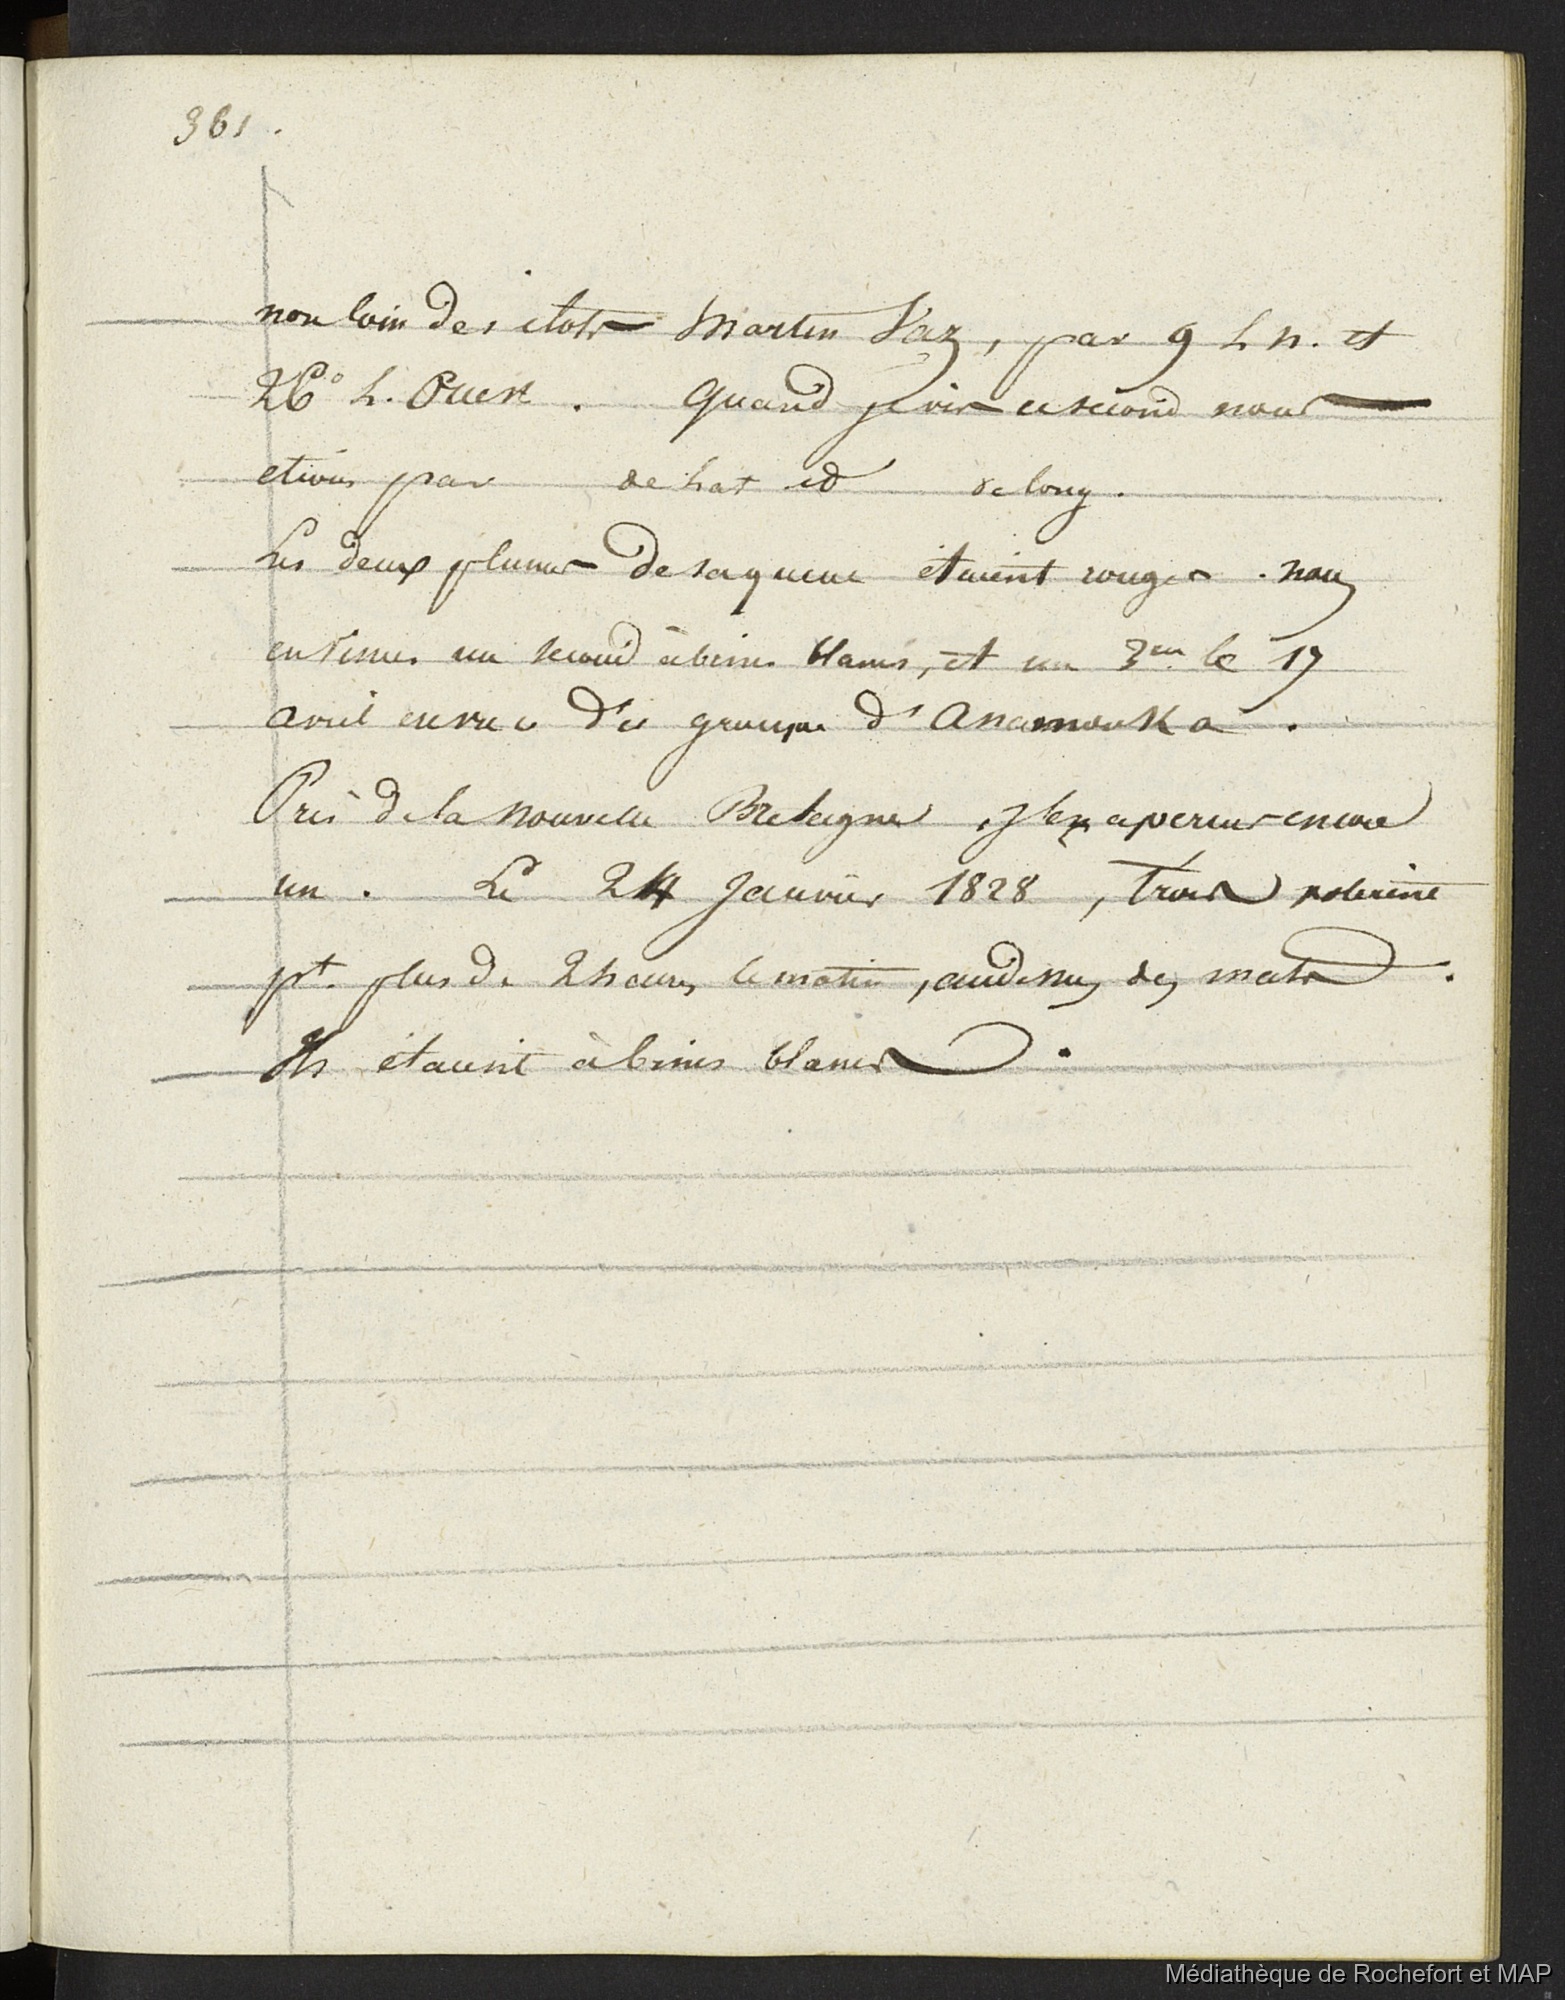 361.
non loin des ilots Martin Vaz, par 9 L N. et
26° L. Ouest. Quand je vis ce second nous
etions par de lat et de long.
Les deux plumes de sa queue étaient rouges. nous
en vimes un second à brins blancs, et un 3em le 17
avril en vue du groupe d'Anamouka.
Près de la nouvelle Bretagne, j'en aperçus encore
un. Le 24 Janvier 1828, Trois
pt. plus de 2 heures le matin, audessus des mats.
Ils étaient à brins blancs.
Médiathèque de Rochefort et MAP